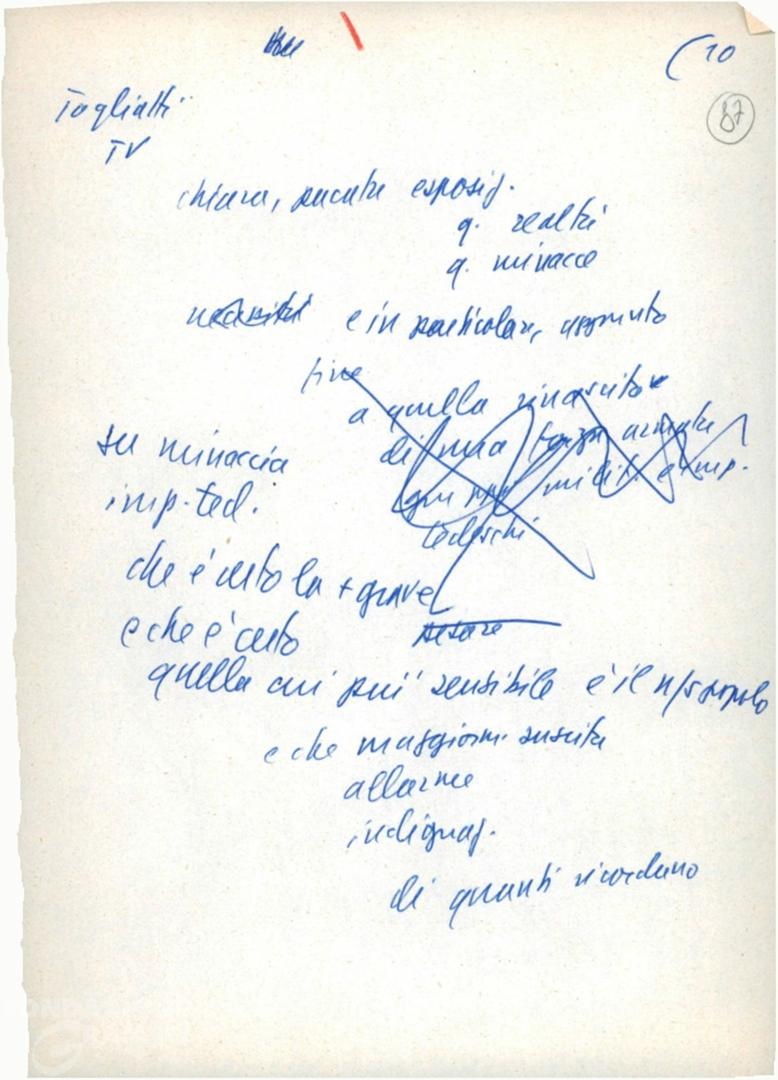 (10
87
Togliatti
TV
chiara, pacata esposiz.
q. realtà
q. minacce
e in particolare,
fine
a quella rinascita
di una forza armata
milit. e imp.
tedeschi
su minaccia
imp. ted.
che è certo la + grave
e che è certo
pesare
quella cui più sensibile è il n/s popolo
e che maggiorm. suscita
allarme
indignaz.
di quanti ricordano